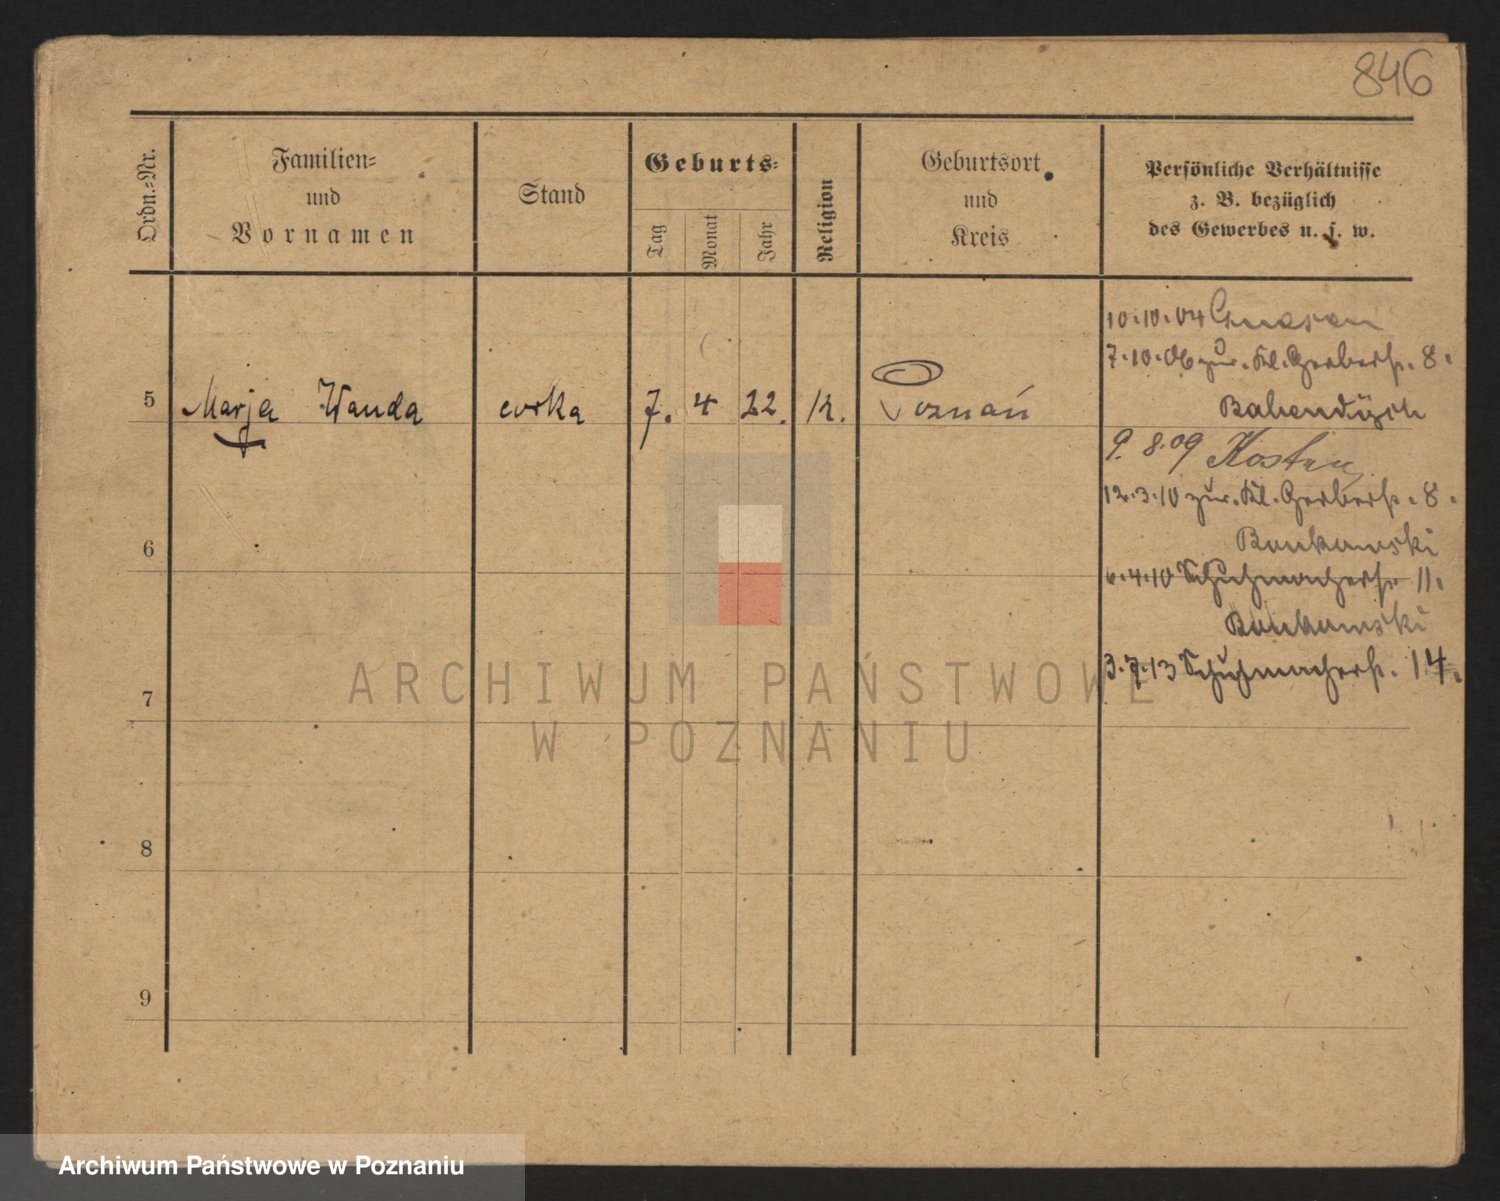 846
Ordn.-Nr.
Familien-
und
Vornamen
Stand
Geburts-
Tag
Monat
Jahr
Religion
Geburtsort
und
Kreis
Persönliche Verhältnisse
z. B. bezüglich
des Gewerbes u. s. w.
5
Marja Wanda
corka
7. 4 22.
K.
Poznań
10.10.04 Gnesen
7.10.06 zur. Kl. Gerberst. 8.
9.8.09 Kosten
12.3.10 zur. Kl. Gerberst. 8.
6.4.10 Schuhmacherst. 11.
3.7.13 Schuhmacherst. 14.
6
7
8
9
ARCHIWUM PAŃSTWOWE
W POZNANIU
Archiwum Państwowe w Poznaniu